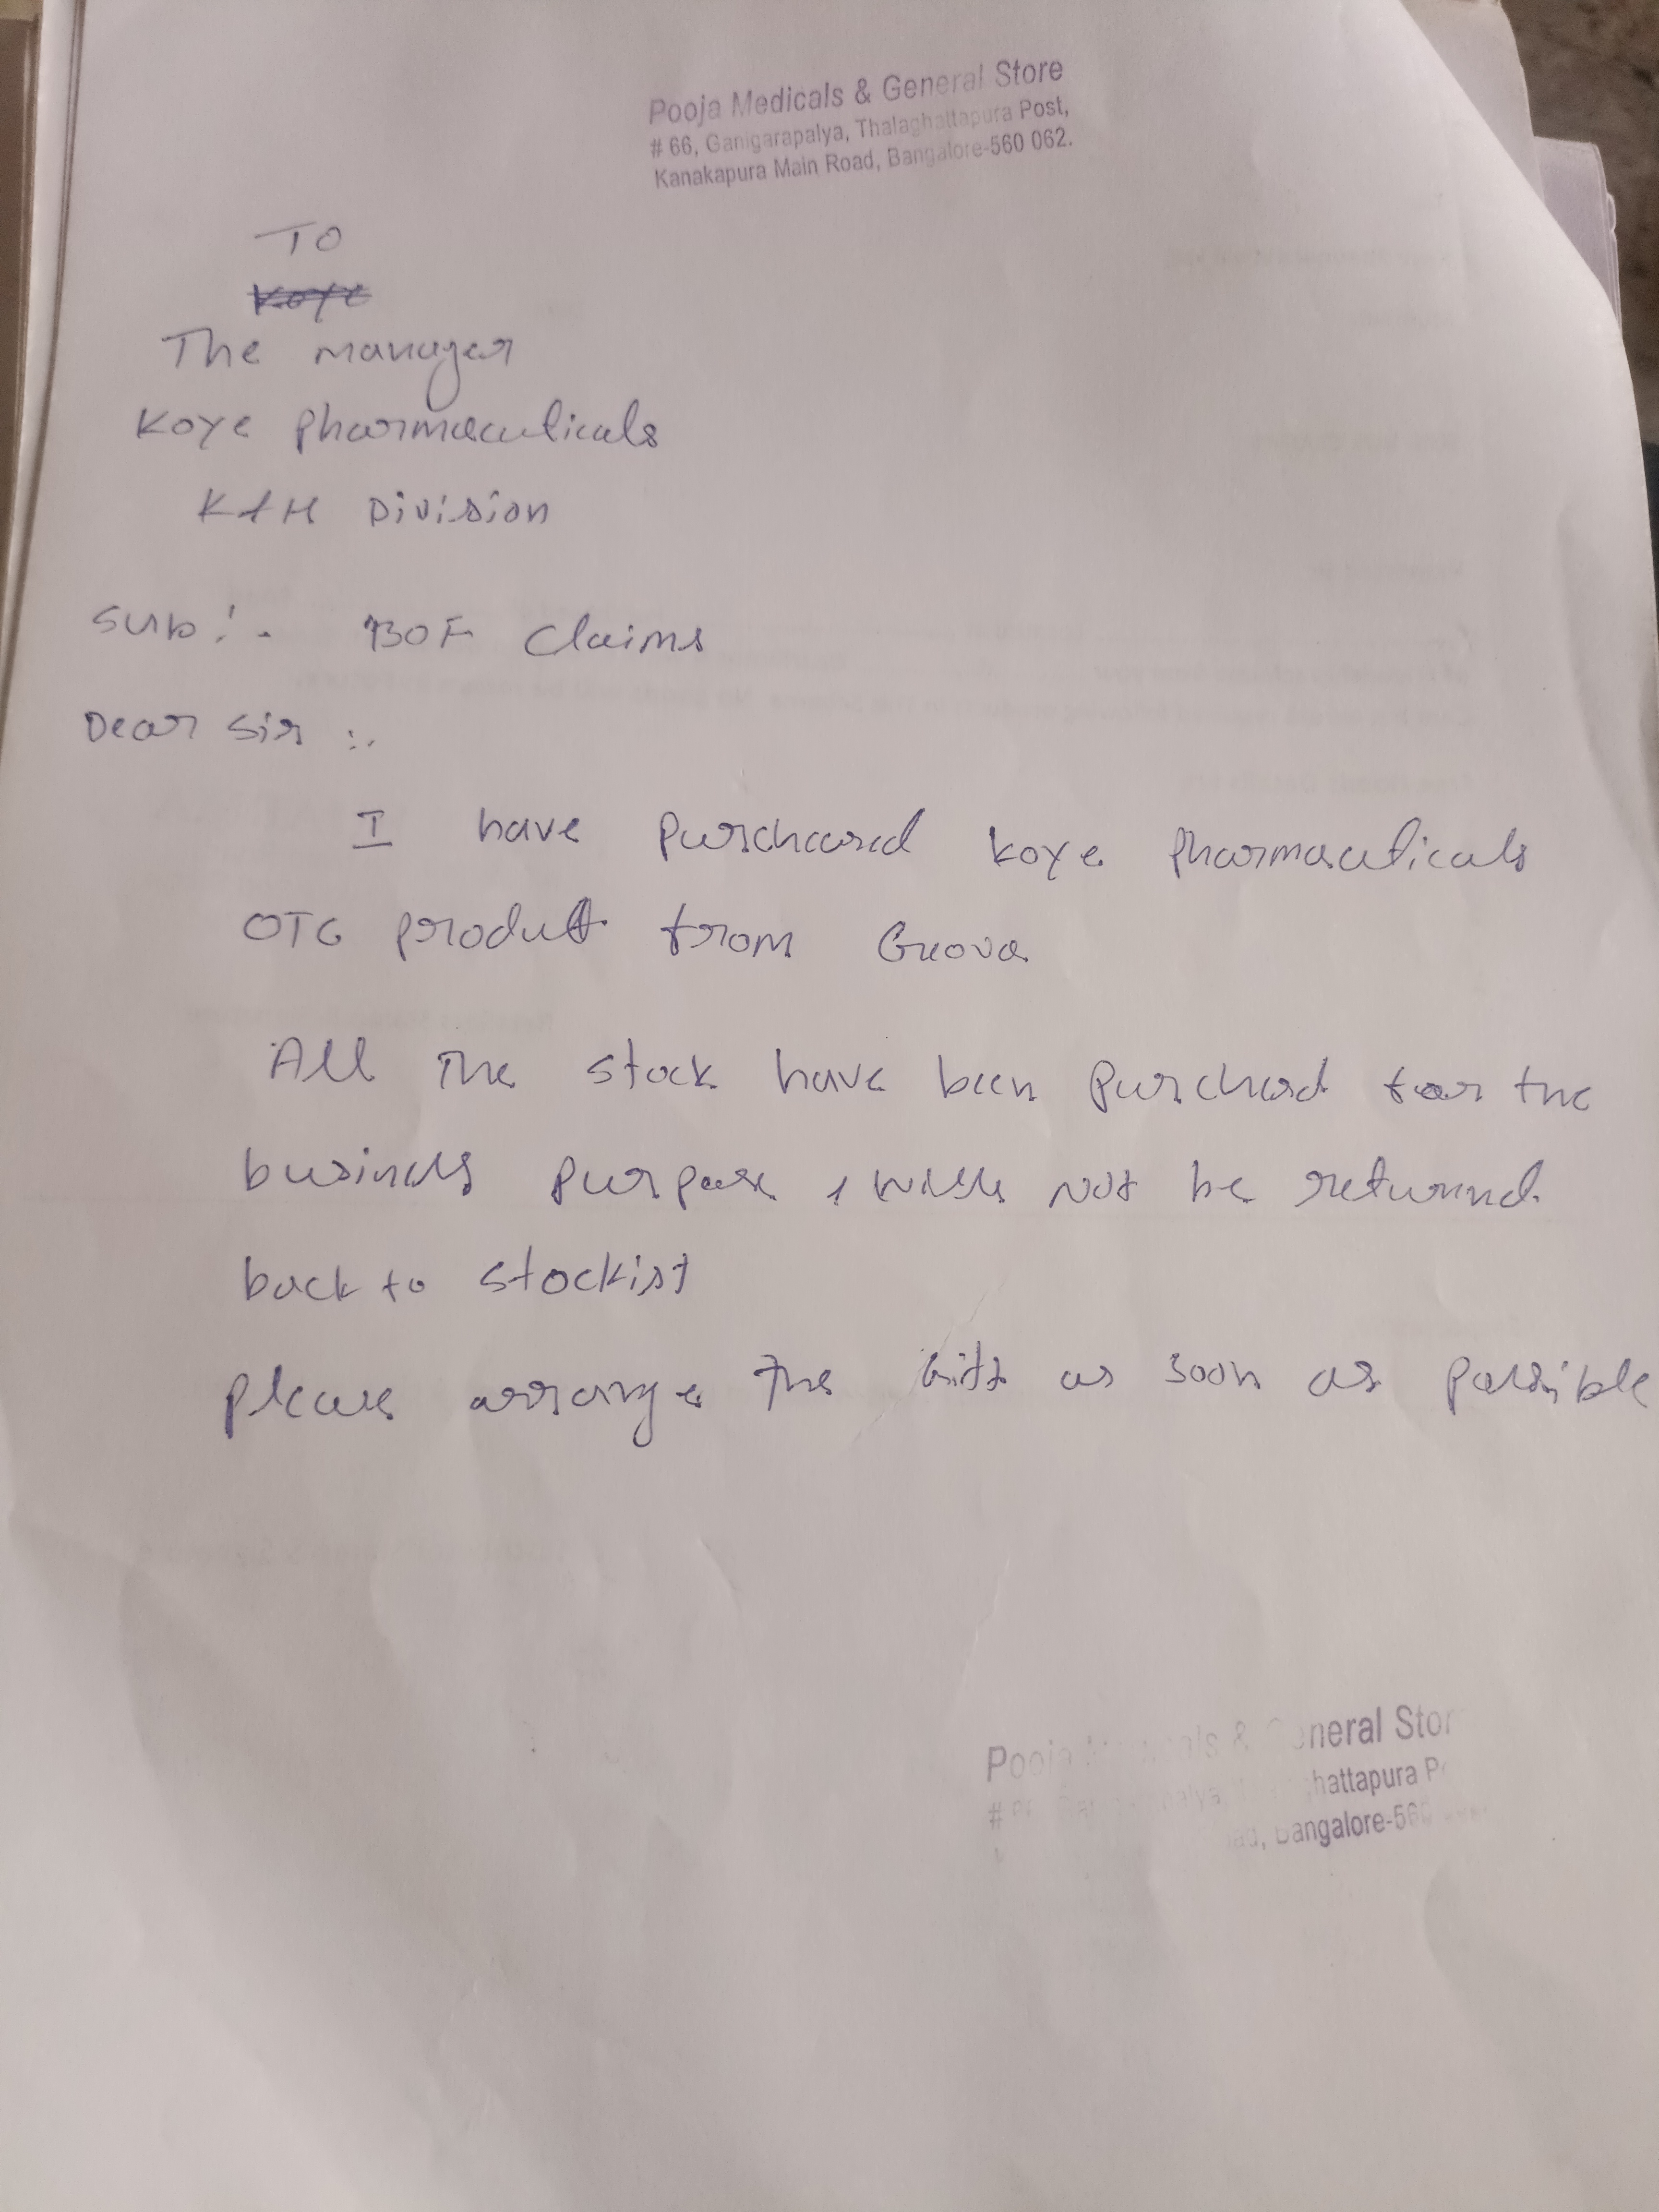 Pooja Medicals & General Store
# 66, Ganigarapalya, Thalaghattapura Post,
Kanakapura Main Road, Bangalore-560 062.
TO
The manager
Koye pharmaceuticals
Division
Sub:- Claims
Dear Sir :-
I have purchased koye pharmaceuticals
product from
All the stock have been purchased for the
business purpose will not be returned
back to stockist
please arrange the gift as soon as possible
neral Stor
hattapura P
Bangalore-560